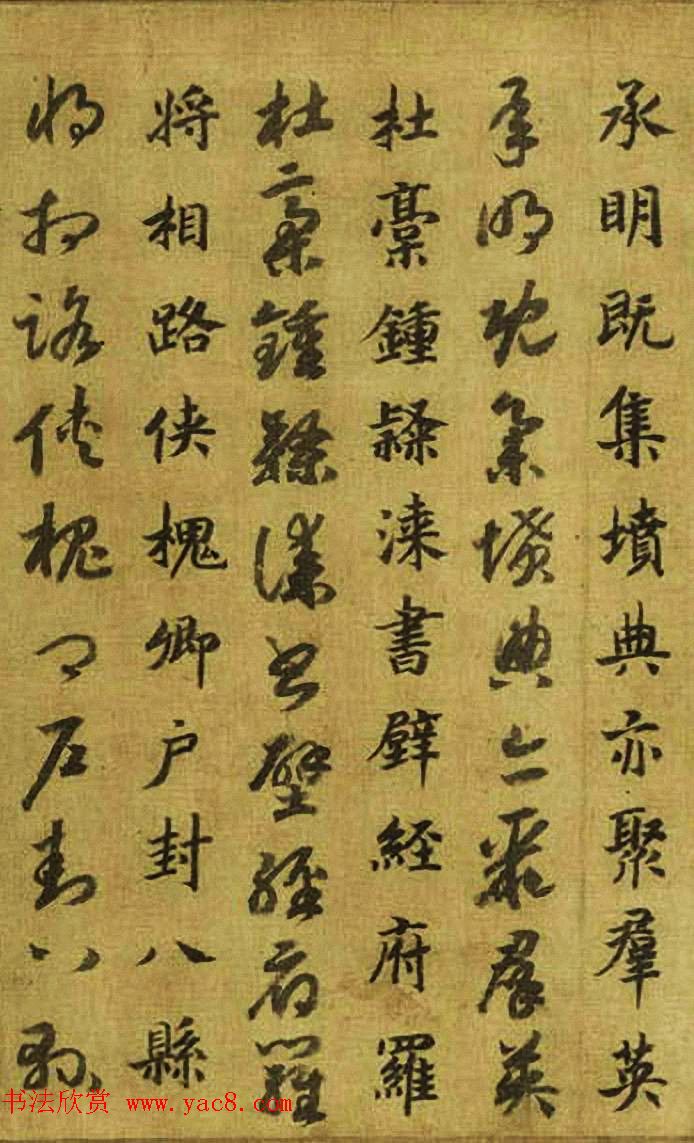 承明既集墳典亦聚羣英
承明既集墳典亦聚羣英
杜稾鍾繇漆書壁經府羅
杜稾鍾繇漆書壁經府羅
將相路俠槐卿户封八縣
將相路俠槐卿户封八縣
书法欣赏 www.yac8.com